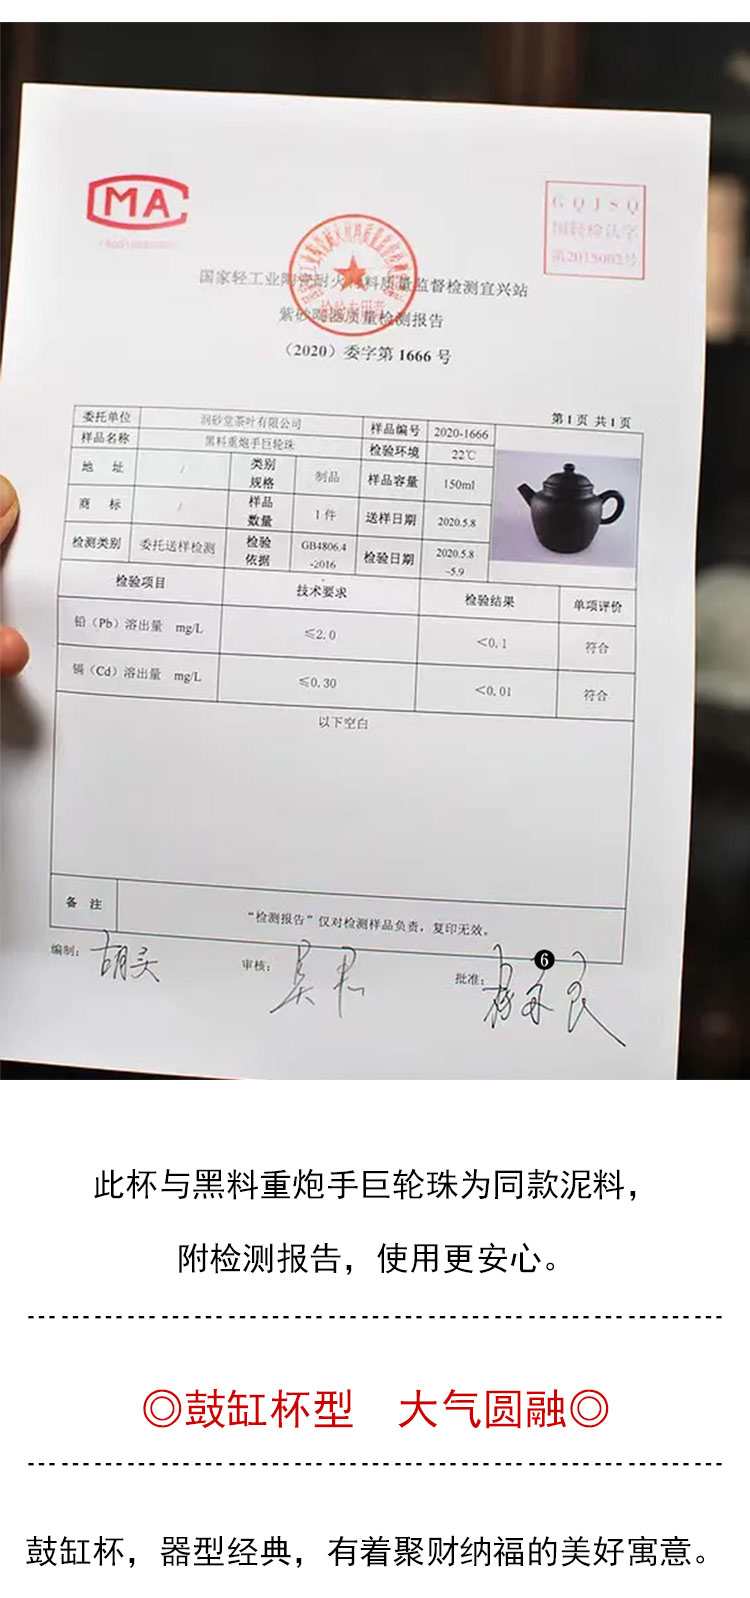 MA
GQJSQ
国轻检认字
第2015002号
国家轻工业陶瓷耐火材料质量监督检测宜兴站
紫砂陶器质量检测报告
（2020）委字第 1666 号
第 1 页 共 1 页
委托单位 润砂堂茶叶有限公司 样品编号 2020-1666
样品名称 黑料重炮手巨轮珠 检验环境 22℃
地 址 / 类别规格 制品 样品容量 150ml
商 标 / 样品数量 1 件 送样日期 2020.5.8
检测类别 委托送样检测 检验依据 GB4806.4-2016 检验日期 2020.5.8-5.9
检验项目 技术要求 检验结果 单项评价
铅（Pb）溶出量 mg/L ≤2.0 <0.1 符合
镉（Cd）溶出量 mg/L ≤0.30 <0.01 符合
以下空白
备 注 “检测报告”仅对检测样品负责，复印无效。
编制： 审核： 批准：
6
此杯与黑料重炮手巨轮珠为同款泥料，
附检测报告，使用更安心。
◎鼓缸杯型 大气圆融◎
鼓缸杯，器型经典，有着聚财纳福的美好寓意。